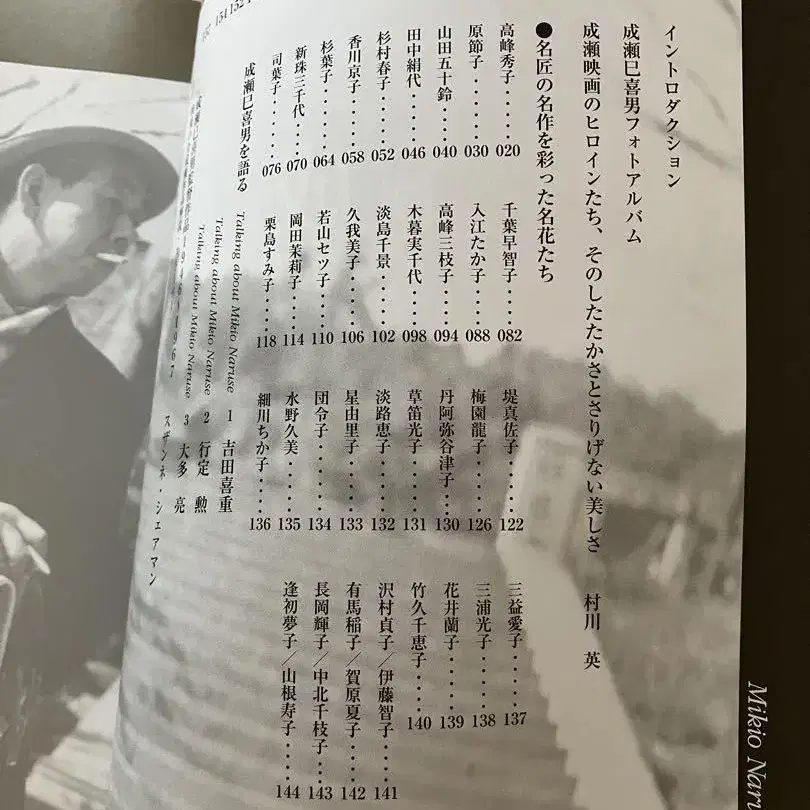 イントロダクション
成瀬巳喜男フォトアルバム
成瀬映画のヒロインたち、そのしたたかさとさりげない美しさ　村川 英
●名匠の名作を彩った名花たち
高峰秀子・・・・・020
原節子・・・・・・030
山田五十鈴・・・・040
田中絹代・・・・・046
杉村春子・・・・・052
香川京子・・・・・058
杉葉子・・・・・・064
新珠三千代・・・・070
司葉子・・・・・・076
千葉早智子・・・・082
入江たか子・・・・088
高峰三枝子・・・・094
木暮実千代・・・・098
淡島千景・・・・・102
久我美子・・・・・106
若山セツ子・・・・110
岡田茉莉子・・・・114
栗島すみ子・・・・118
堤真佐子・・・・・122
梅園龍子・・・・・126
丹阿弥谷津子・・・130
草笛光子・・・・・131
淡路恵子・・・・・132
星由里子・・・・・133
団令子・・・・・・134
水野久美・・・・・135
細川ちか子・・・・136
三益愛子・・・・・137
三浦光子・・・・・138
花井蘭子・・・・・139
竹久千恵子・・・・140
沢村貞子／伊藤智子・・・・141
有馬稲子／賀原夏子・・・・142
長岡輝子／中北千枝子・・・143
逢初夢子／山根寿子・・・・144
成瀬巳喜男を語る
Talking about Mikio Naruse 1 吉田喜重
Talking about Mikio Naruse 2 行定 勲
Talking about Mikio Naruse 3 大多 亮
スザンネ・シェアマン
152
154
Mikio Naru